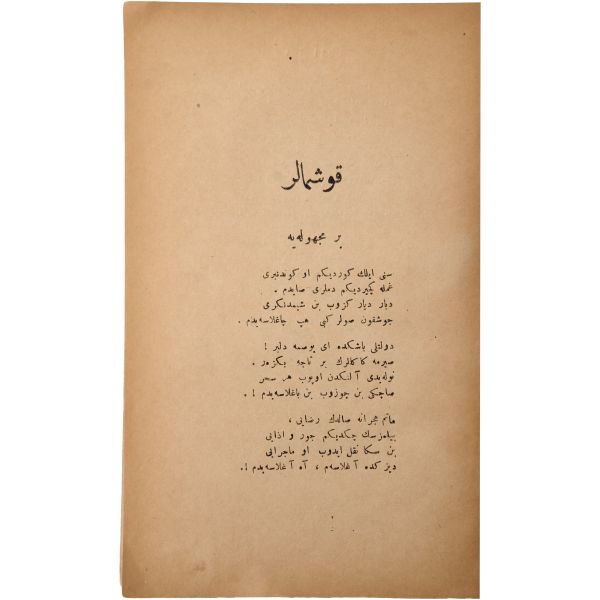 قوشمالر
بر مجهوله‌یه
سنی ایلك كوردیكم او كوندنبری
غمله كچیردیكم دملری صایدم .
دیار دیار كزوب بن شیمدنكری
جوشقون صولر كبی هپ چاغلاسه‌یدم .
دولتلی باشكده ای یوصمه دلبر !
صیرمه كاكللرك بر تاجه بكزه‌ر .
نوله‌یدی آ لنكدن اوپوب هر سحر
صاچكی بن چوزوب بن باغلاسه‌یدم ! .
هانم هجرانه صالدك رضایی ،
بیلمزسك چكدیكم جور و اذایی
بن سكا نقل ایدوب او ماجرایی
دیزكده آ غلاسه‌م ، آه آ غلاسه‌یدم ! .